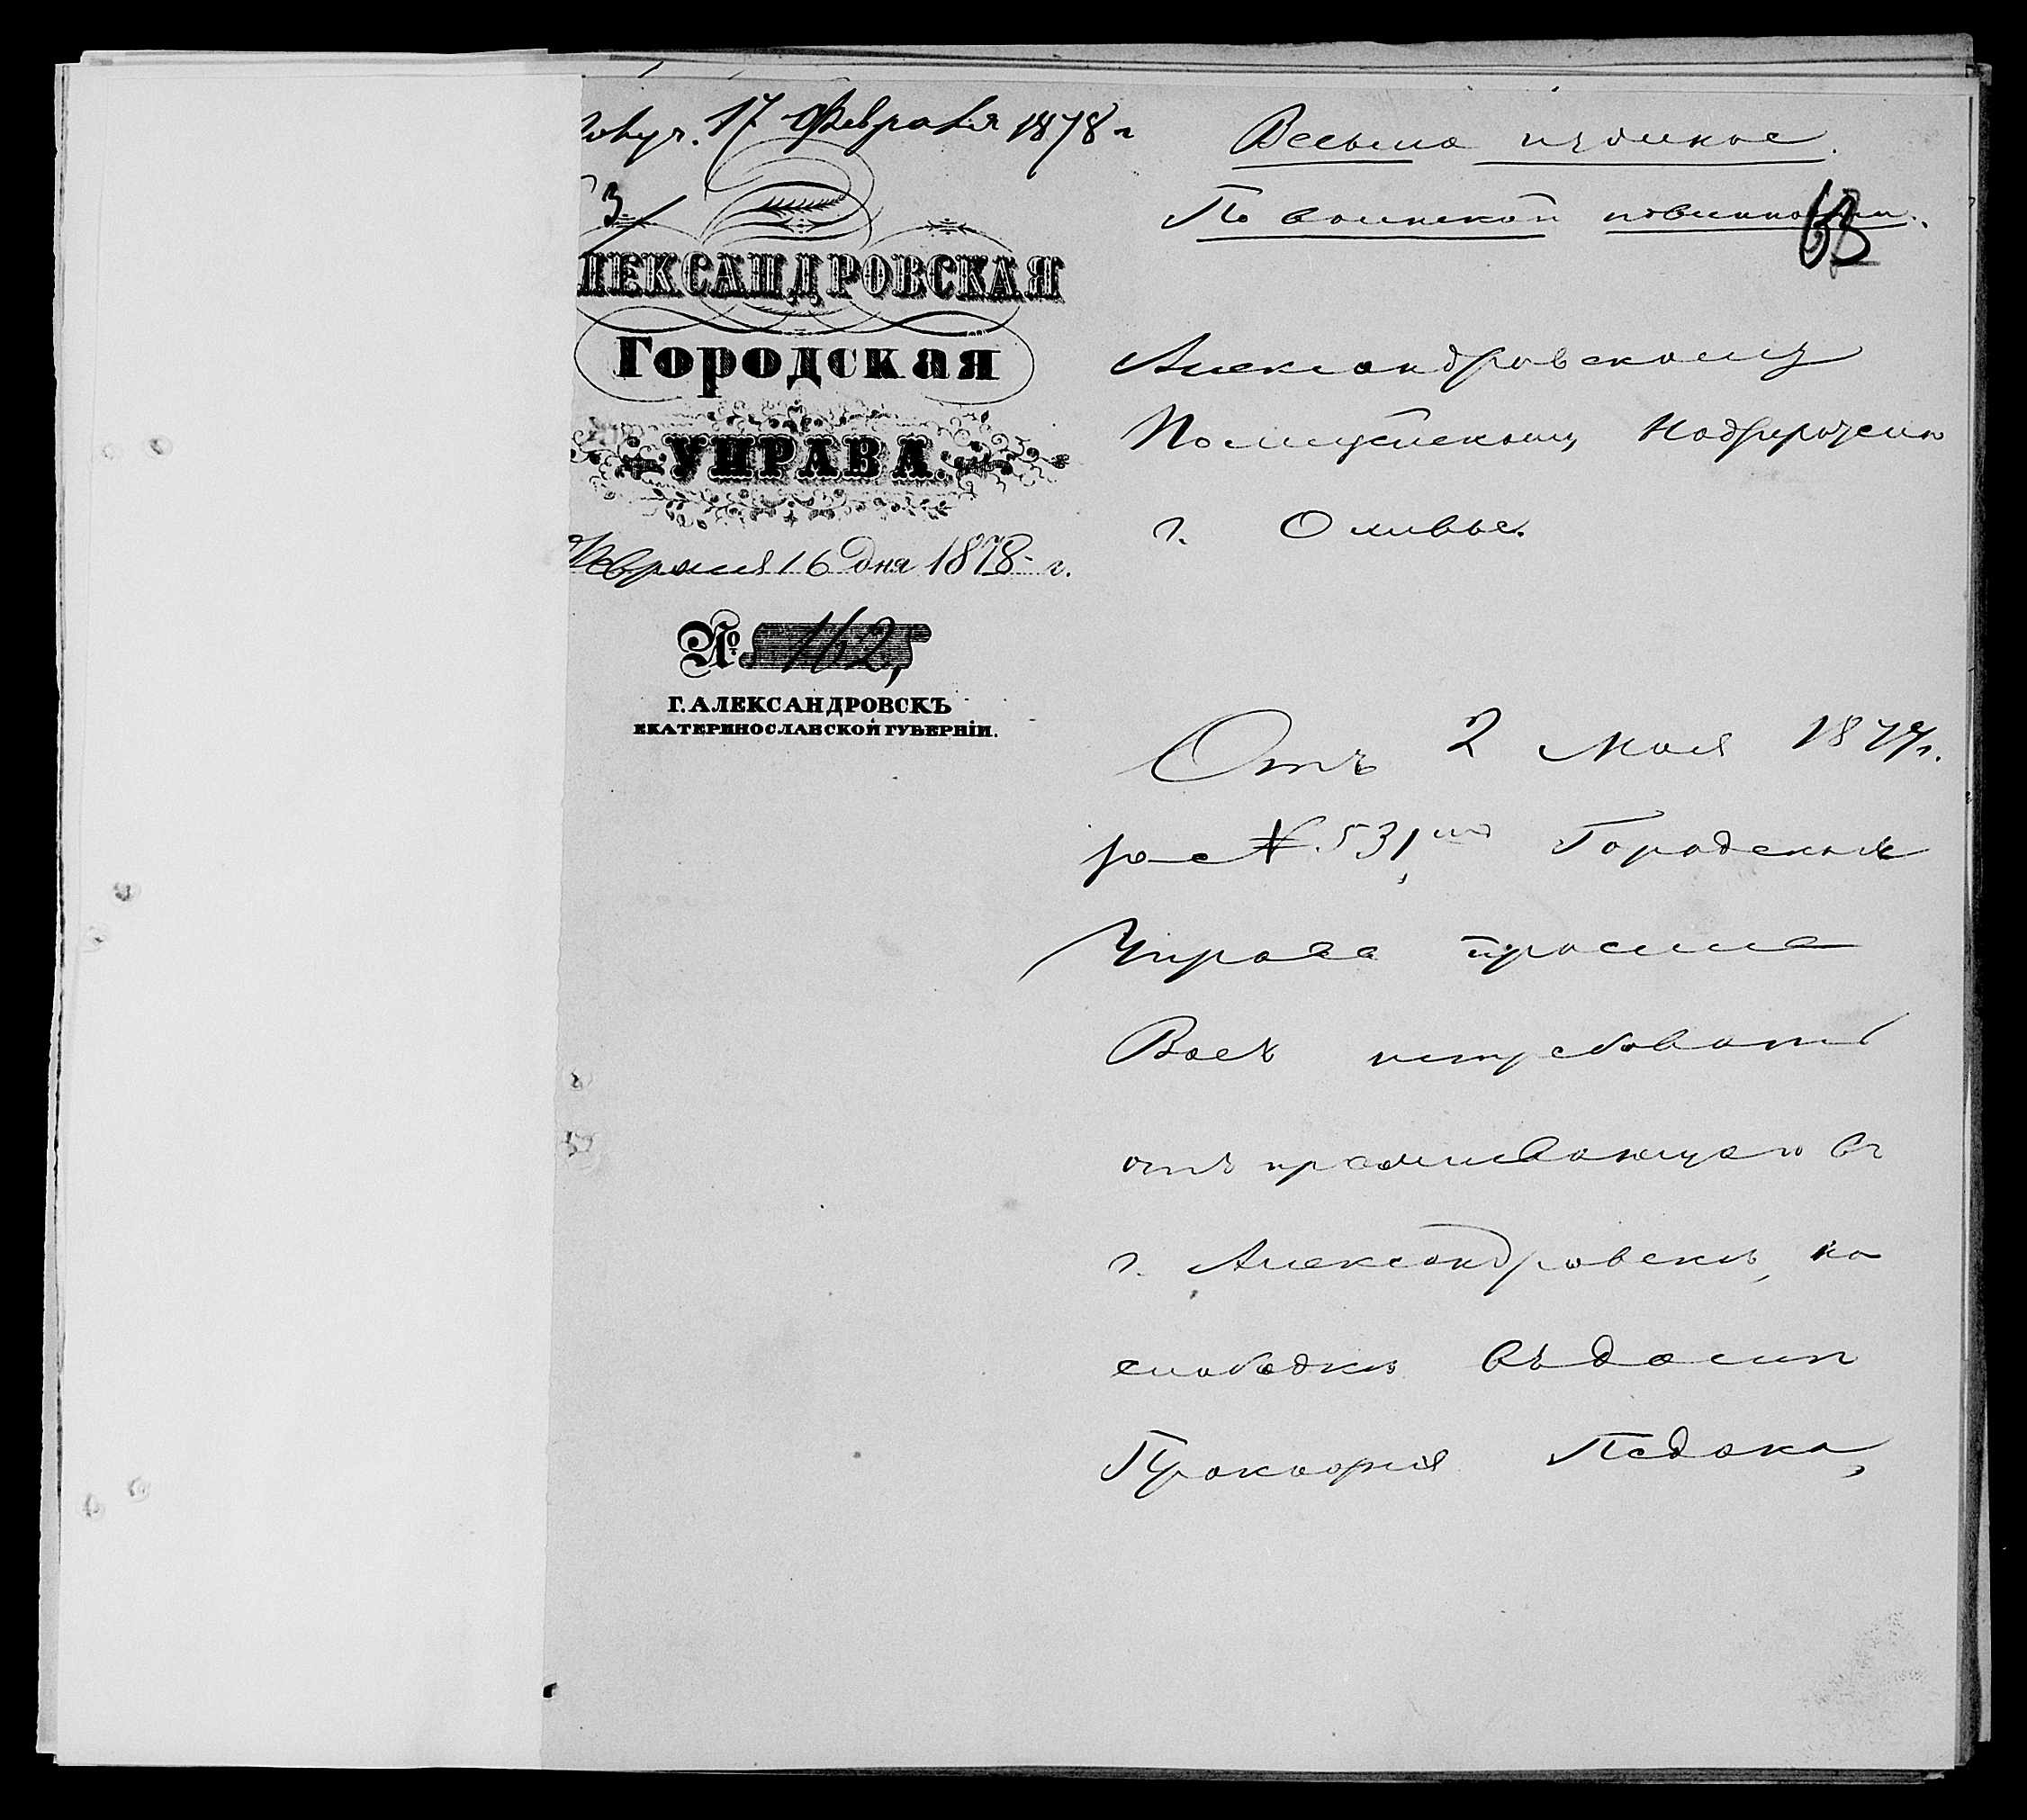 Получ. 17 Февраля 1878 г
3
АЛЕКСАНДРОВСКАЯ
Городская
УПРАВА.
Февраля 16 дня 1878 г.
№ 162,
Г. АЛЕКСАНДРОВСКЪ
ЕКАТЕРИНОСЛАВСКОЙ ГУБЕРНІИ.
Весьма нужное.
По воинской повинности.
63
Александровскому
Полицейскому Надзирателю
г. Оливье.
Отъ 2 Мая 1877 г.
за № 531, Городская
Управа просила
Васъ истребовать
отъ проживающаго въ
г. Александровскѣ, на
слободкѣ въ домѣ
Прокофія Педака,